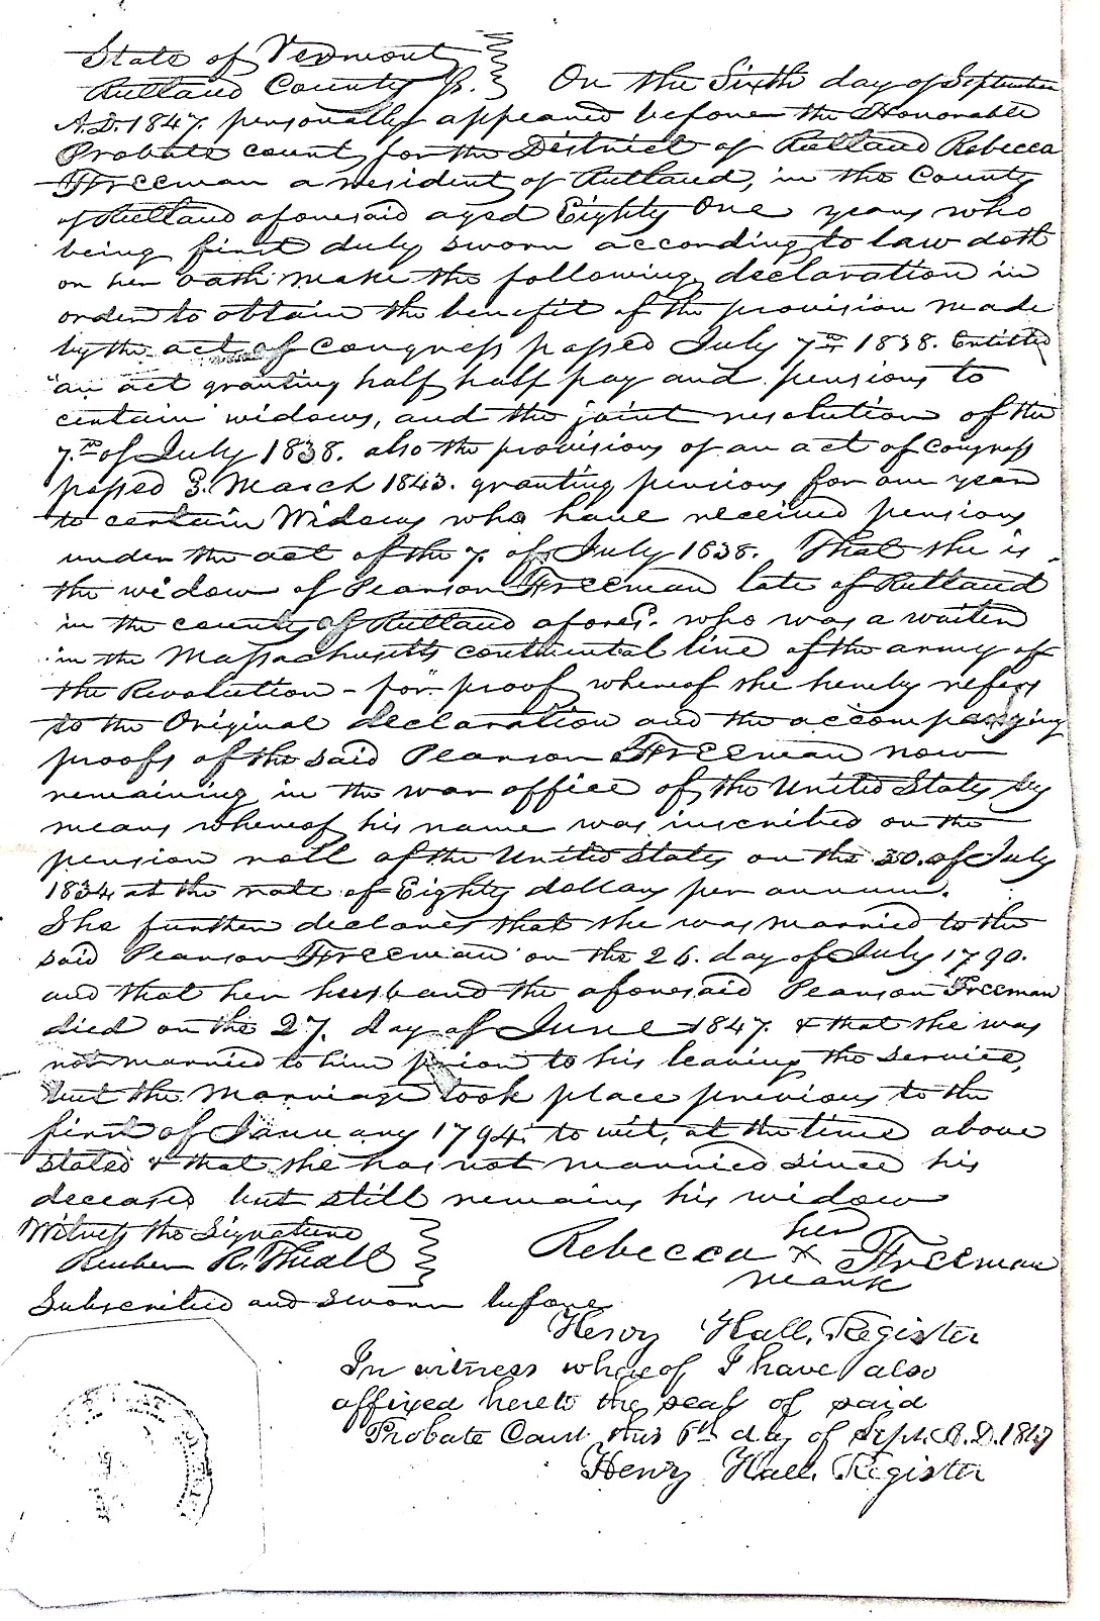 State of Vermont
Rutland County Ss. On the Sixth day of September
A.D. 1847. personally appeared before the Honorable
Probate court for the District of Rutland Rebecca
Freeman a resident of Rutland, in the County
of Rutland aforesaid aged Eighty One years who
being first duly sworn according to law doth
on her oath make the following declaration in
order to obtain the benefit of the provision made
by the act of Congress passed July 7th 1838. Entitled
"an act granting half half pay and pensions to
certain widows, and the joint resolution of the
7th of July 1838. also the provisions of an act of Congress
passed 3. March 1843. granting pensions for one year
to certain Widows who have received pensions
under the act of the 7. of July 1838. That she is
the widow of Pearson Freeman late of Rutland
in the county of Rutland afores. who was a waiter
in the Massachusetts continental line of the army of
the Revolution - for proof whereof she hereby refers
to the Original declaration and the accompanying
proofs of the said Pearson Freeman now
remaining in the war office of the United States by
means whereof his name was inscribed on the
pension roll of the United States on the 30. of July
1834 at the rate of Eighty dollars per annum.
She further declares that she was married to the
said Pearson Freeman on the 26. day of July 1790.
and that her husband the aforesaid Pearson Freeman
died on the 27. day of June 1847. & that she was
not married to him prior to his leaving the service,
but the Marriage took place previous to the
first of January 1794. to wit, at the time above
stated & that she has not married since his
deceased but still remains his widow
Witness the Signature her
Reuben R. Thrall Rebecca X Freeman
mark
Subscribed and sworn before
Henry Hall, Register
In witness whereof I have also
affixed hereto the seal of said
Probate Court this 6th day of Sept. A.D. 1847
Henry Hall, Register